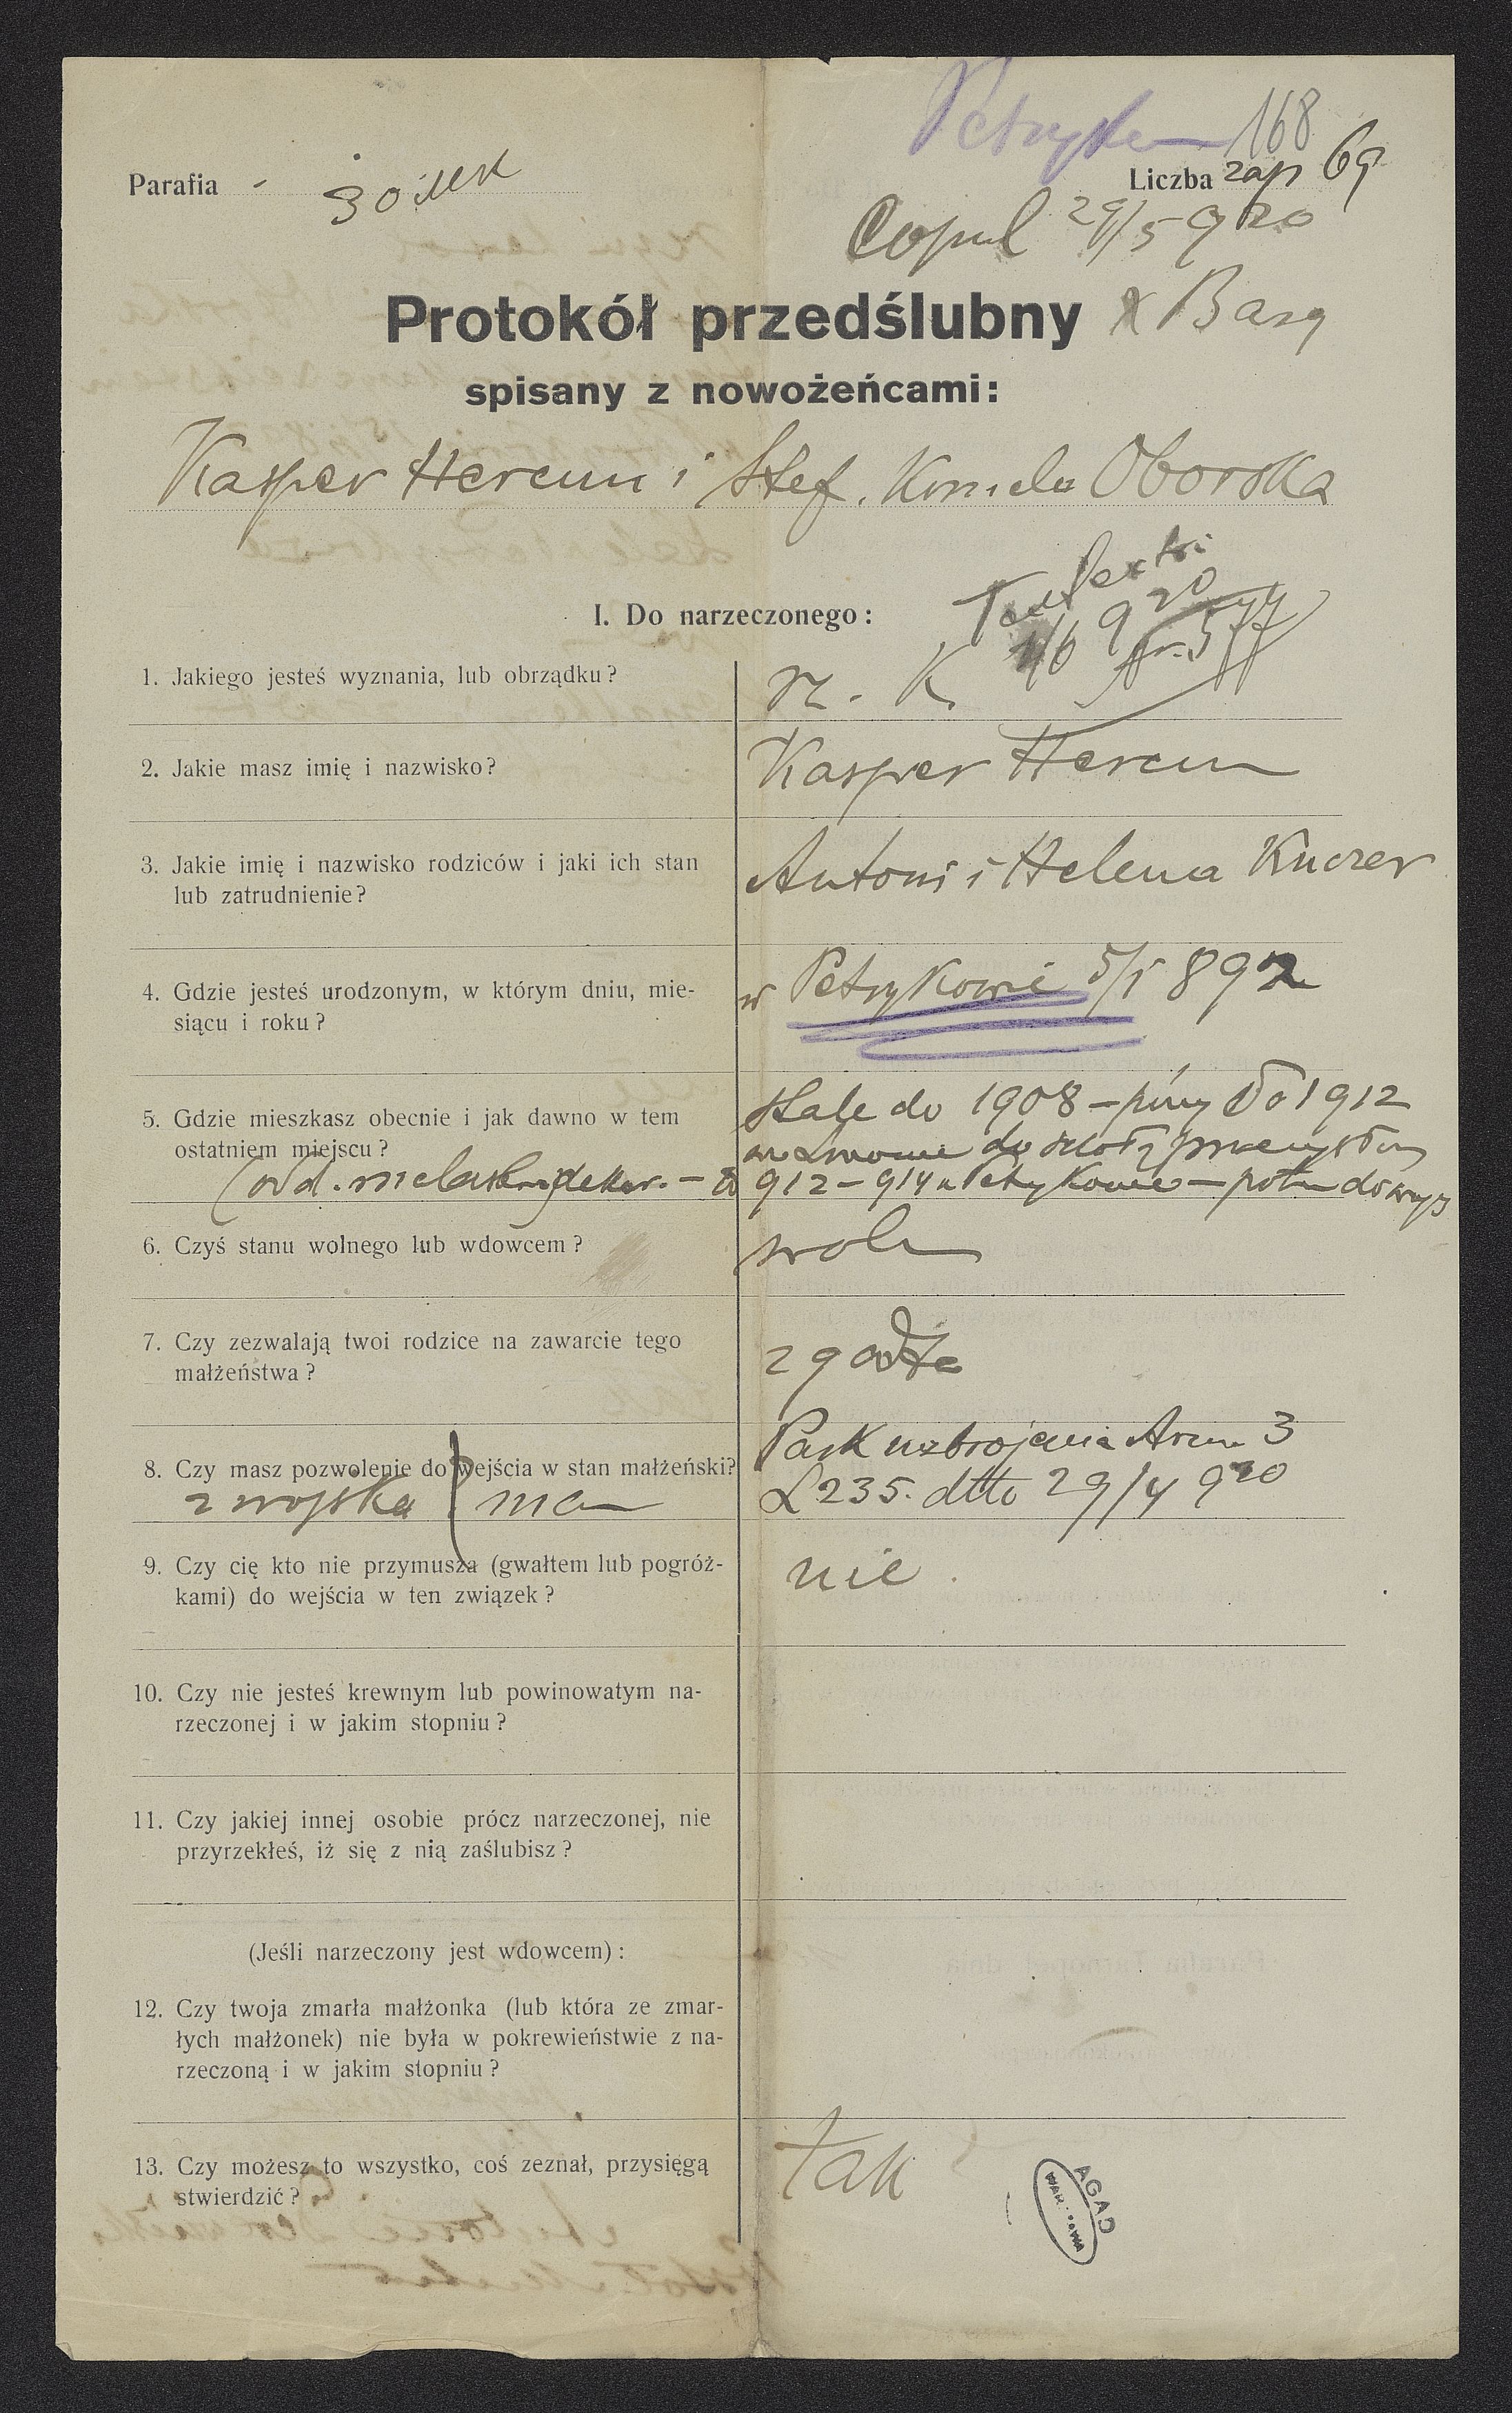 168
Parafia
Liczba zap 69
Copul 29/5 920
Protokół przedślubny
spisany z nowożeńcami:
Kasper Hercun i Stef. Kornela Oborska
I. Do narzeczonego:
1/6 920
1. Jakiego jesteś wyznania, lub obrządku? rz. K
2. Jakie masz imię i nazwisko? Kasper Hercun
3. Jakie imię i nazwisko rodziców i jaki ich stan
lub zatrudnienie?
Antoni i Helena Kuczer
4. Gdzie jesteś urodzonym, w którym dniu, mie-
siącu i roku?
w Petrykowie 5/1 892
5. Gdzie mieszkasz obecnie i jak dawno w tem
ostatniem miejscu?
stale do 1908 – do 1912
912 – 914 w Petrykowie –
6. Czyś stanu wolnego lub wdowcem? woln
7. Czy zezwalają twoi rodzice na zawarcie tego
małżeństwa?
8. Czy masz pozwolenie do wejścia w stan małżeński?
z wojska ma
Park uzbrojenia Arm 3
L 235. dtto 29/4 920
9. Czy cię kto nie przymusza (gwałtem lub pogróż-
kami) do wejścia w ten związek?
nie
10. Czy nie jesteś krewnym lub powinowatym na-
rzeczonej i w jakim stopniu?
11. Czy jakiej innej osobie prócz narzeczonej, nie
przyrzekłeś, iż się z nią zaślubisz?
(Jeśli narzeczony jest wdowcem):
12. Czy twoja zmarła małżonka (lub która ze zmar-
łych małżonek) nie była w pokrewieństwie z na-
rzeczoną i w jakim stopniu?
13. Czy możesz to wszystko, coś zeznał, przysięgą
stwierdzić?
tak
AGAD